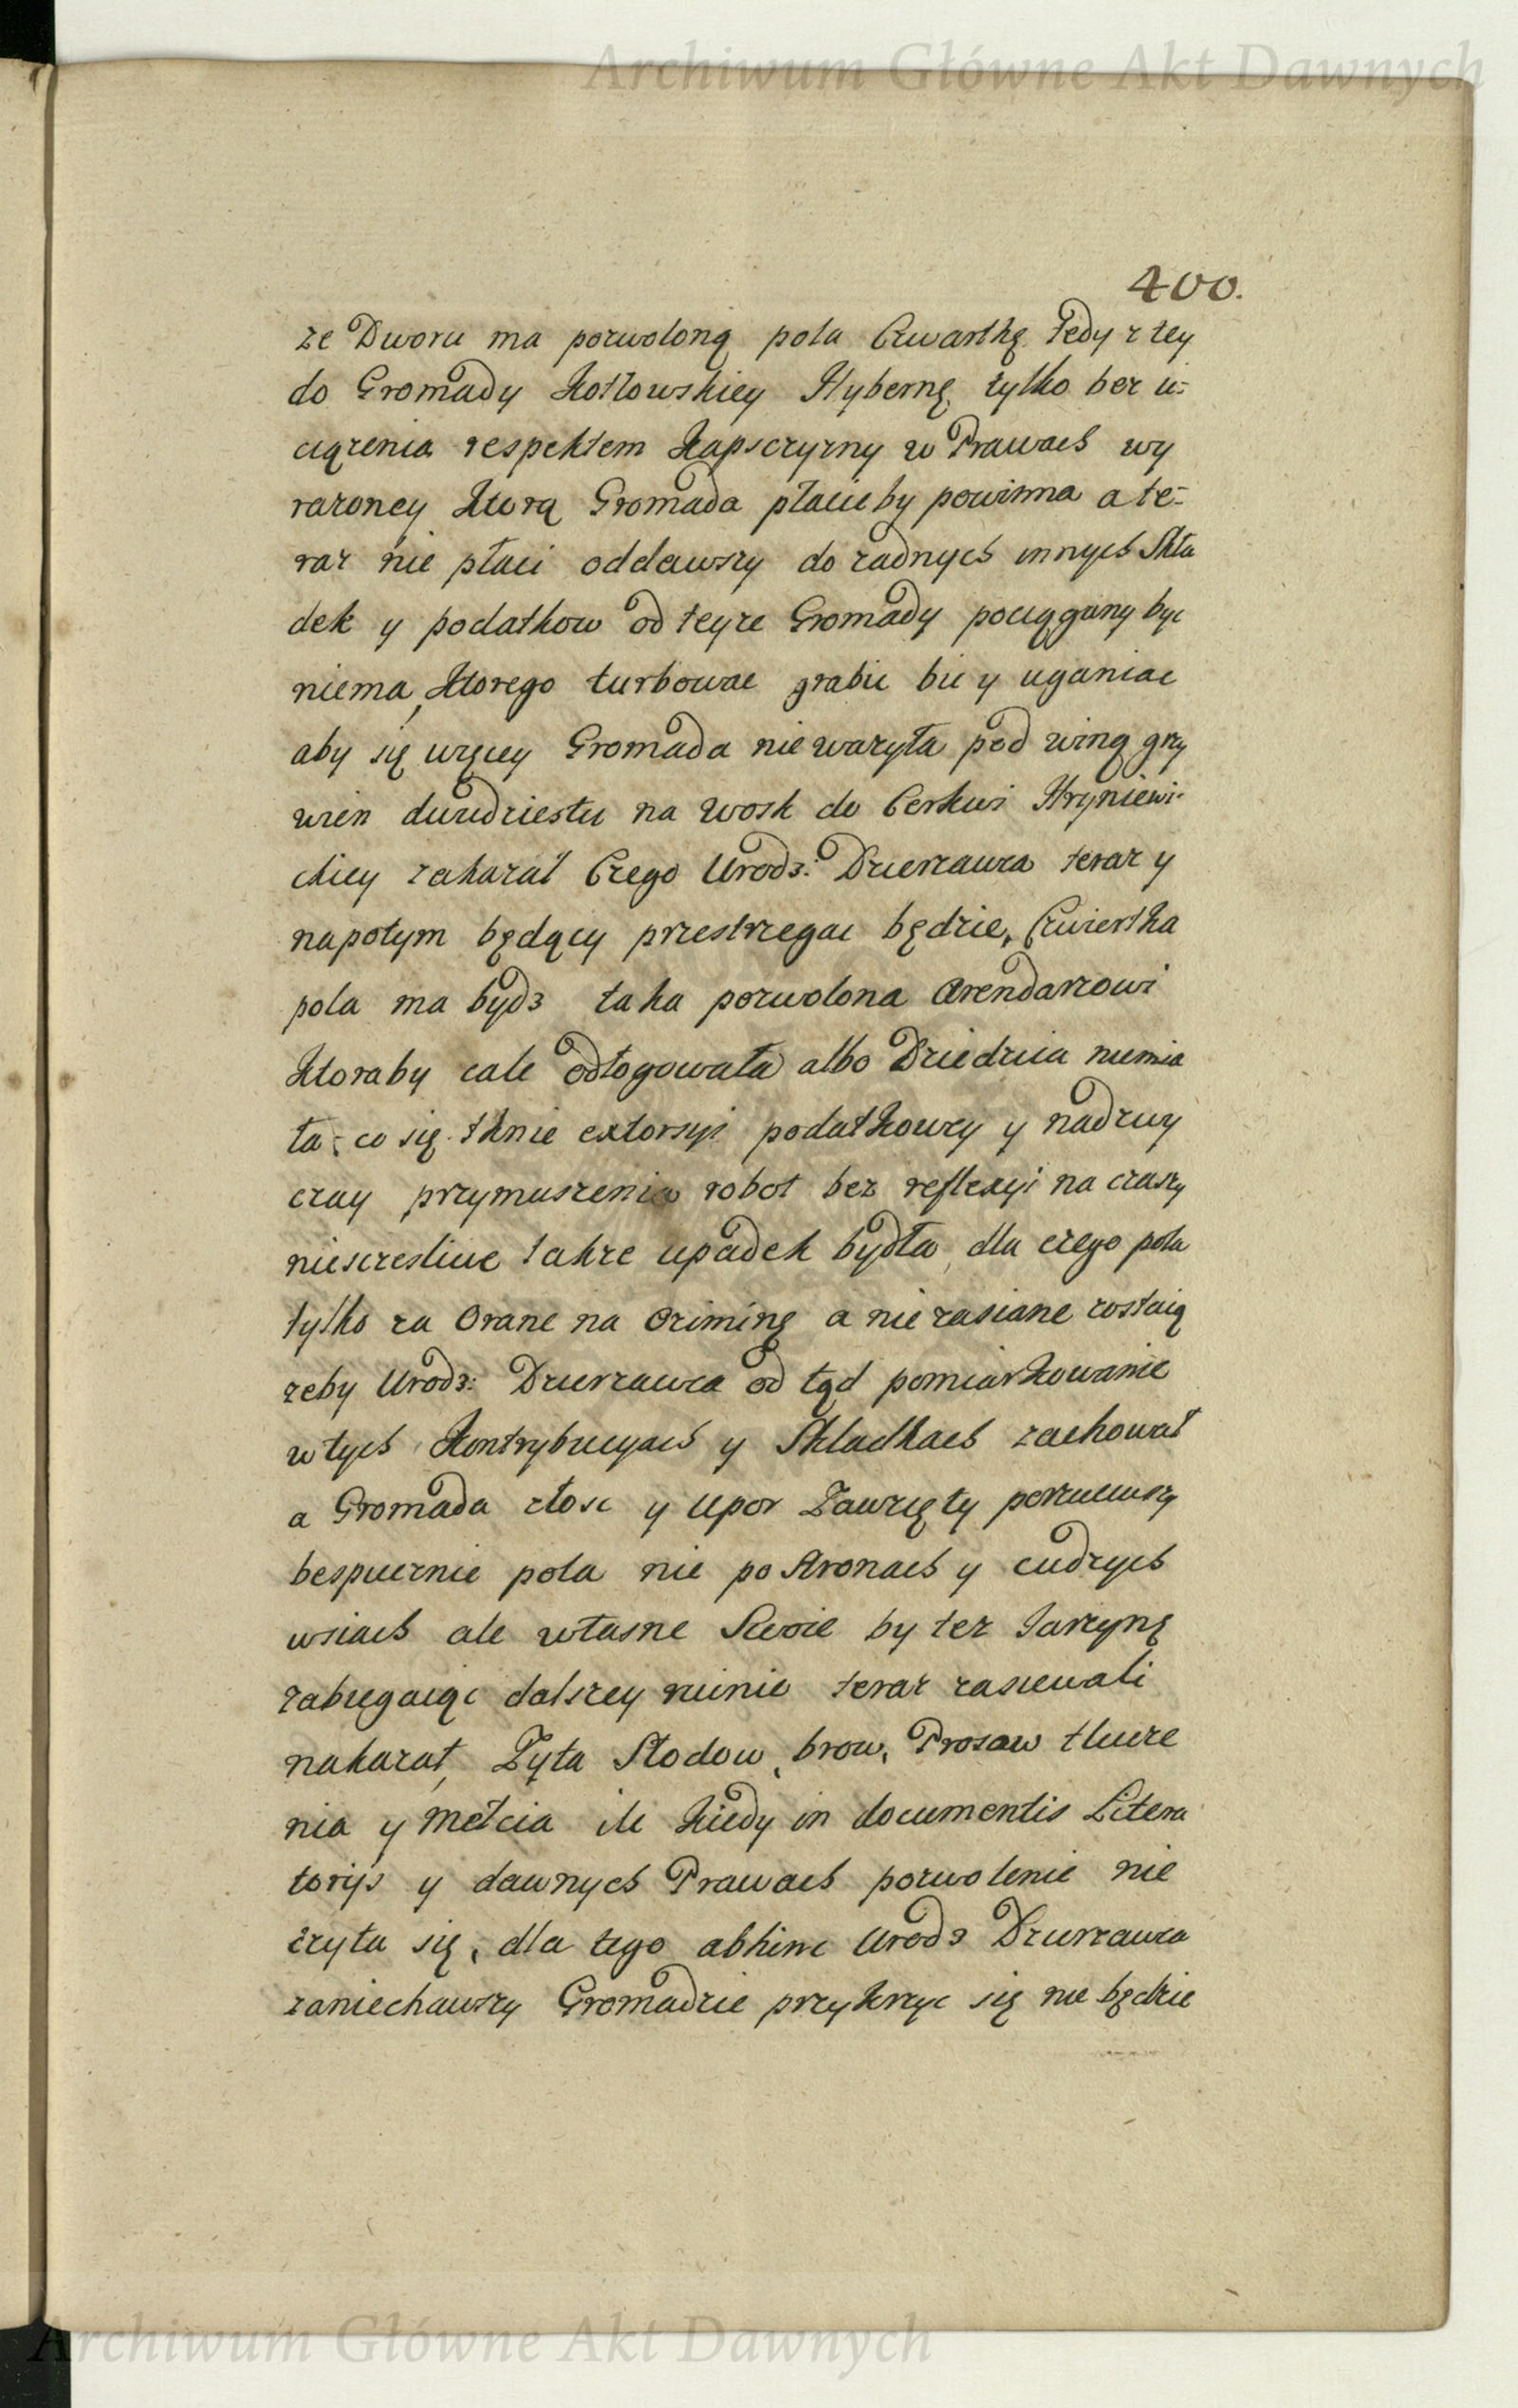 Archiwum Główne Akt Dawnych
400.
ze Dworu ma pozwoloną pola Czwartkę. Tedy z tey
do Gromady Kotłowskiey Hybernę, tylko bez u=
ciązenia respektem Kapsczyzny w Prawach wy
razoney Ktorą Gromada płacicby powinna a te=
raz nie płaci oddawszy do zadnych innych Skła
dek y podatkow od teyze Gromady pociągany byc
niema, Ktorego turbowac grabic bic y uganiac
aby się więcy Gromada niewazyła pod winą grzy
wien dwudziestu na wosk do Cerkwi Hryniewi-
ckiey zakazał Czego Urodz: Dzierzawca teraz y
napotym będący przestrzegac będzie, Cwiertka
pola ma bydz taka pozwolona Arendarzowi
Ktoraby cale odłogowała albo Dziedzica niemia
ła; co się tknie extorsyi podatkowey y nadzwy
czay przymuszenia robot bez reflexyi na czasy
niesczesliwe takze upadek bydła, dla czego pola
tylko za Orane na Oziminę a nie zasiane zostaią
zeby Urodz: Dzierzawca od tąd pomiarkowanie
w tych Kontrybucyach y Składkach zachował
a Gromada złosc y Upor Zawzięty porzuciwszy
bespiecznie pola nie po stronach y cudzych
wsiach ale własne Swoie by tez Jarzyną
zabiegaiąc dalszey ruinie teraz zasiewali
nakazał, Zyta Słodow, brow, Prosow tłucze
nia y Mełcia ile Kiedy in documentis Litera
torijs y dawnych Prawach pozwolenie nie
czyta się, dla tego abhinc Urodz Dzierzawca
zaniechawszy Gromadzie przykrzyc się nie będzie
Archiwum Główne Akt Dawnych